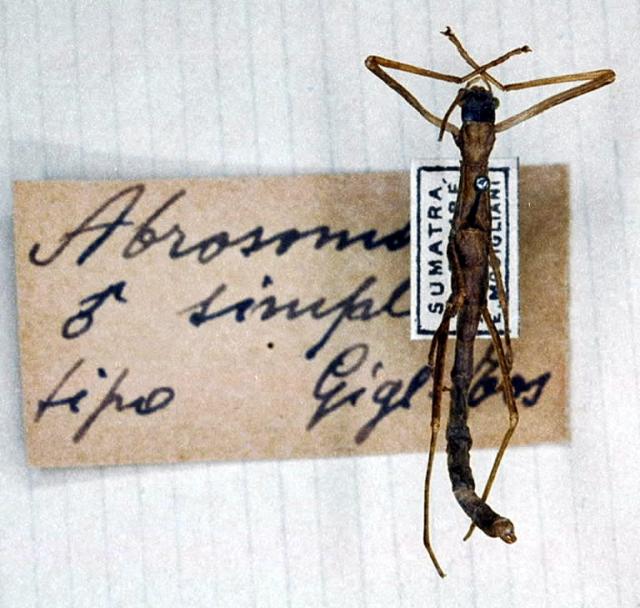 Abrosoma
♂ simpl
tipo Gigl-Tos
SUMATRA
E. MODIGLIANI